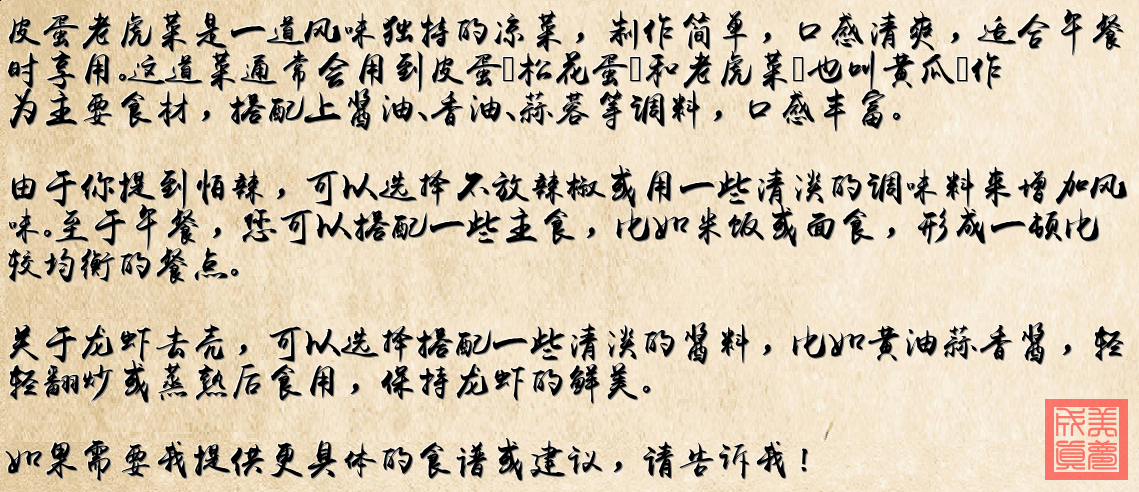 皮蛋老虎菜是一道风味独特的凉菜，制作简单，口感清爽，适合午餐
时享用。这道菜通常会用到皮蛋（松花蛋）和老虎菜（也叫黄瓜）作
为主要食材，搭配上酱油、香油、蒜蓉等调料，口感丰富。
由于你提到怕辣，可以选择不放辣椒或用一些清淡的调味料来增加风
味。至于午餐，您可以搭配一些主食，比如米饭或面食，形成一顿比
较均衡的餐点。
关于龙虾去壳，可以选择搭配一些清淡的酱料，比如黄油蒜香酱，轻
轻翻炒或蒸熟后食用，保持龙虾的鲜美。
如果需要我提供更具体的食谱或建议，请告诉我！
美梦成真